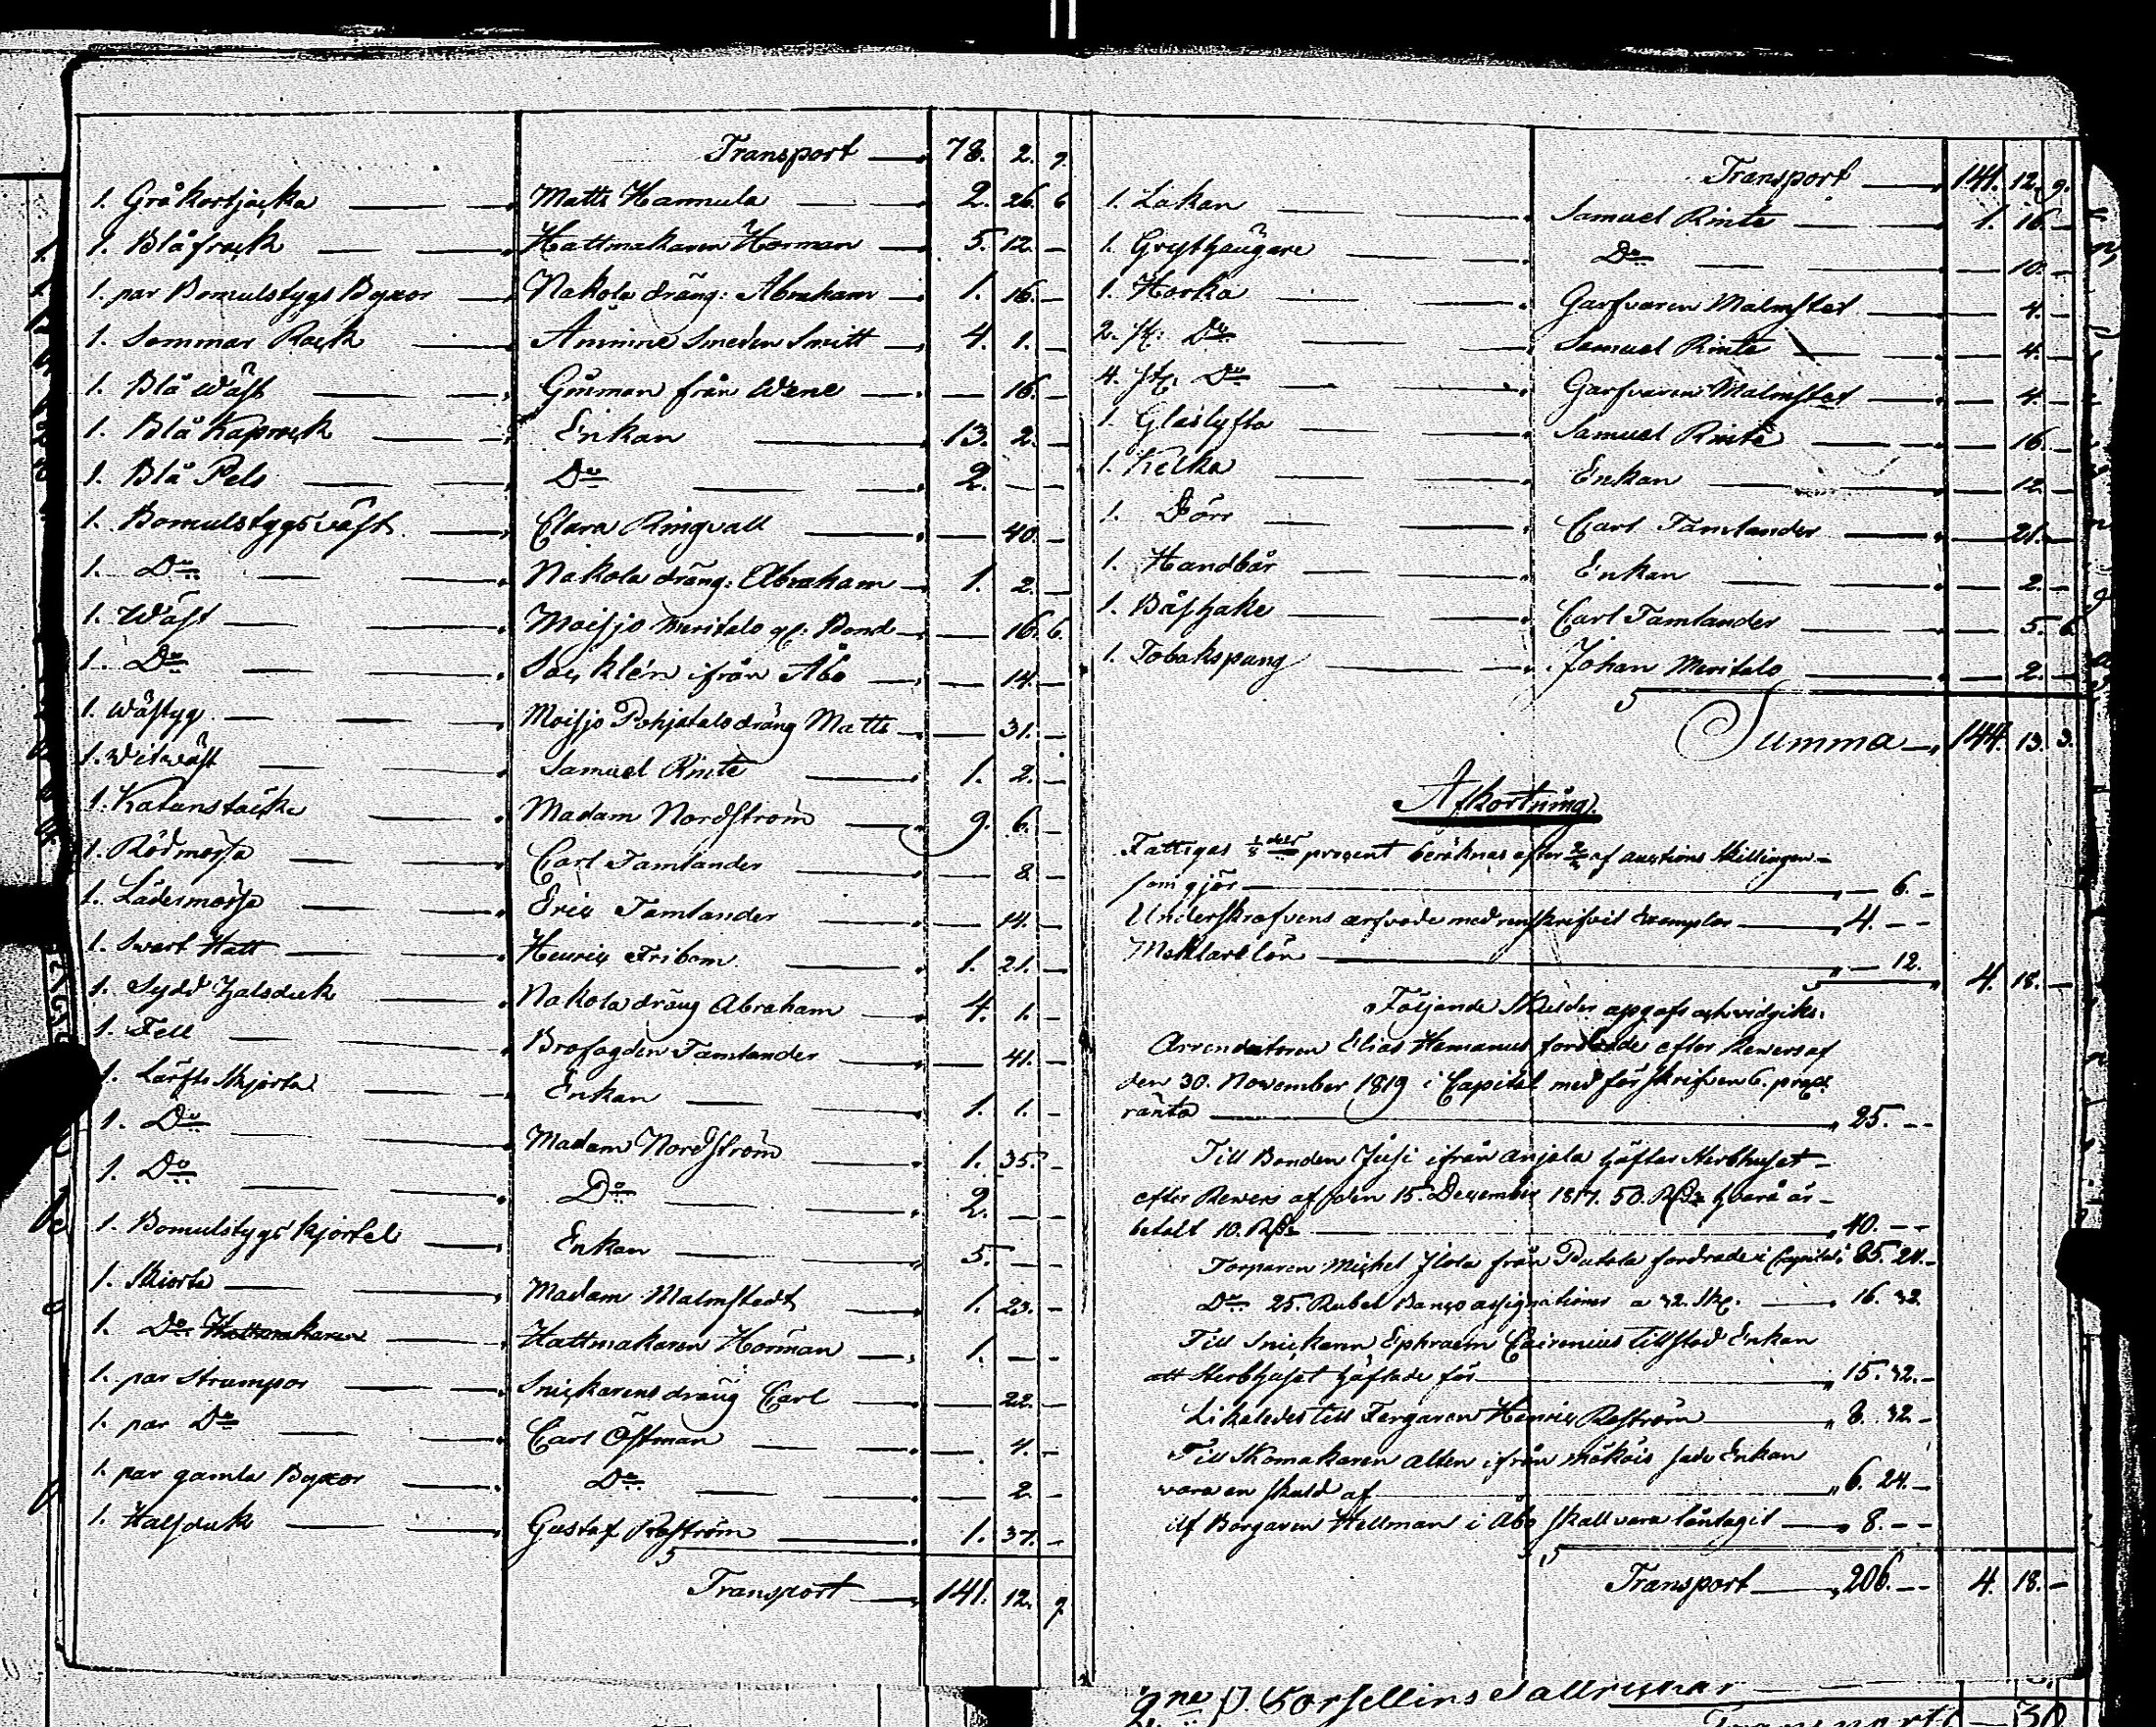 Transport 78. 2. 9.
1. Grå kortjacka Matts Hannula 2. 26. 6
1. Blå frack Hattmakaren Hörman 5. 12. —
1. par Bomulstygs Byxor Nakola dräng: Abraham 1. 16. —
1. Sommar Rock Åminne Smeden Smitt 4. 1. —
1. Blå Wäst från Wene — 16. —
1. Blå Kaprock Enkan 13. 2. —
1. Blå Pels Do 2. — —
1. Bomulstygs väst Clara Ringvall — 40. —
1. Do Nakola dräng: Abraham 1. 2. —
1. Wäst Moisjo Meritalo Bond — 16. 6.
1. Do ifrån Åbo — 14. —
1. Wästyg Moisjo Pohjatalo dräng Matts — 31. —
1. Witwäst Samuel Rinte 1. 2. —
1. Katuns Madam Nordström 9. 6. —
1. Röd mössa Carl Tamlander — 8. —
1. Läder mössa Eric Tamlander — 14. —
1. Swart Hatt Henric Fribom 1. 21. —
1. Sydd halsduk Nakola dräng Abraham 4. 1. —
1. Fell Brofogden Tamlander — 41. —
1. Lärfts Skjorta Enkan 1. 1. —
1. Do Madam Nordström 1. 35. —
1. Do Do 2. — —
1. Bomulstygs kjortel Enkan 5. — —
1. Skiorta Madam Malmstedt 1. 23. —
1. Do Hattmakaren Hattmakaren Hörman 1. — —
1. par Strumpor Snickarens dräng Carl — 22. —
1. par Do Carl Östman — 4. —
1. par gamla Byxor Do — 2. —
1. Halsduk Gustaf Roström 1. 37. —
Transport 141. 12. 9.
Transport 141. 12. 9.
1. Lakan Samuel Rinte 1. 16. —
1. Do — 10. —
1. Horka Garfvaren Malmsted — 4. —
2. st: Do Samuel Rinte — 4. —
4. st. Do Garfvaren Malmsted — 4. —
1. Glaslyfta Samuel Rinte — 16. —
1. Kelka Enkan — 12. —
1. Dörr Carl Tamlander — 21. —
1. Handbår Enkan — 2. —
1. Båtshake Carl Tamlander — 5. 6
1. Tobakspung Johan Meritalo — 2. —
Summa 144. 13. 3.
Afkortning.
Fattigas 1/8 dels procent beräknas efter af auctions Skillingen
som gjör — 6. —
Underskrefvens arfvode med renskrifvit Exemplar 4. — —
Mäklare lön — 12. 4. 18. —
Följande Skulder appgafs och vidgicks.
Arrendatoren Elias Hemanus fordrade efter Revers af
den 30. November 1819 i Capital med förskrifven 6. proc:
ränta 25. — —
Till Bonden Jusi ifrån Anjala häftar Sterbhuset
efter Revers af den 15. December 1817. 50. hvarå är
betalt 10. 40. — —
Torparen Michel Ilola från Putola fordrade i Capital: 85. 24. —
Do 25. Rubel Banco assignationer a 32. 16. 32.
Till Snickaren Ephraim Caironius tillstod Enkan
att Sterbhuset häftade för 15. 32. —
Likaledes till Fergaren Henric Roström 8. 32. —
Till Skomakaren Alten ifrån sade Enkan
vara en skuld af 6. 24. —
Af Borgaren Hellman i Åbo skall vara låntagit 8. — —
Transport 206. — — 4. 18. —